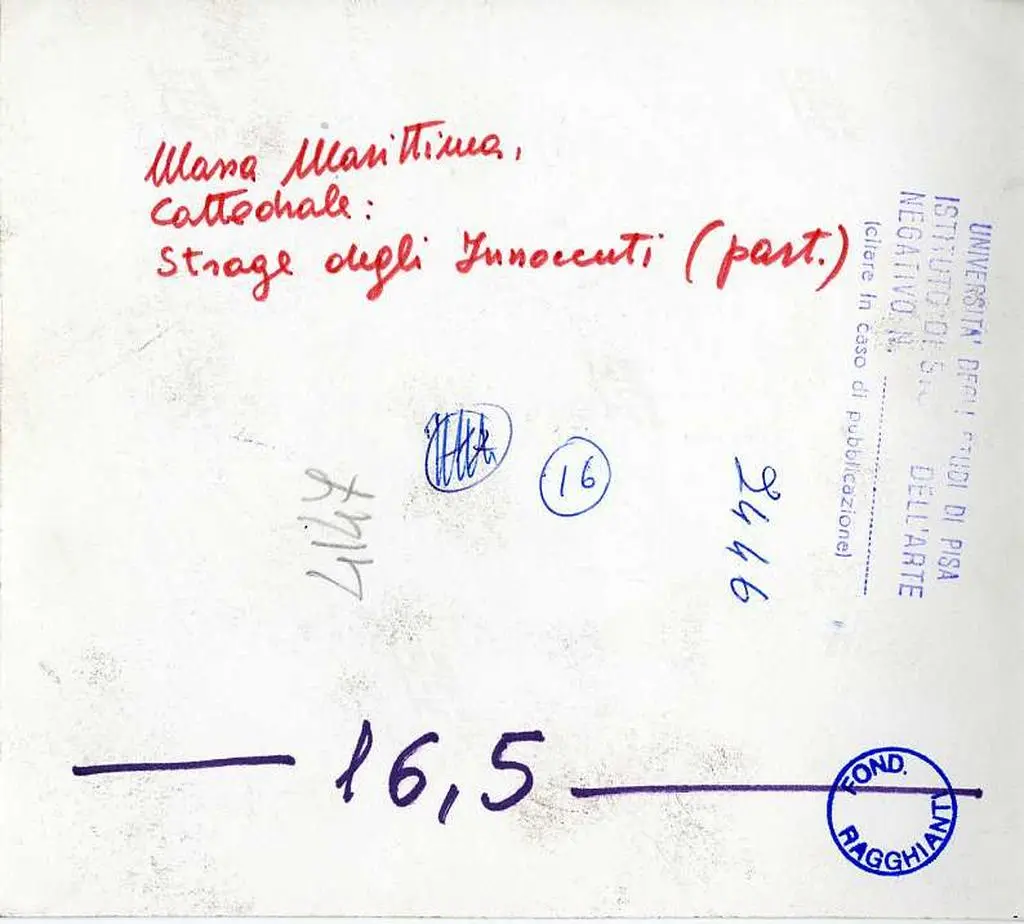 Massa Marittima,
Cattedrale:
Strage degli Innocenti (part.)
UNIVERSITA' DEGLI STUDI DI PISA
ISTITUTO DI DELL'ARTE
NEGATIVO N.
(citare in caso di pubblicazione)
2446
16
4147
16,5
FOND.
RAGGHIANTI